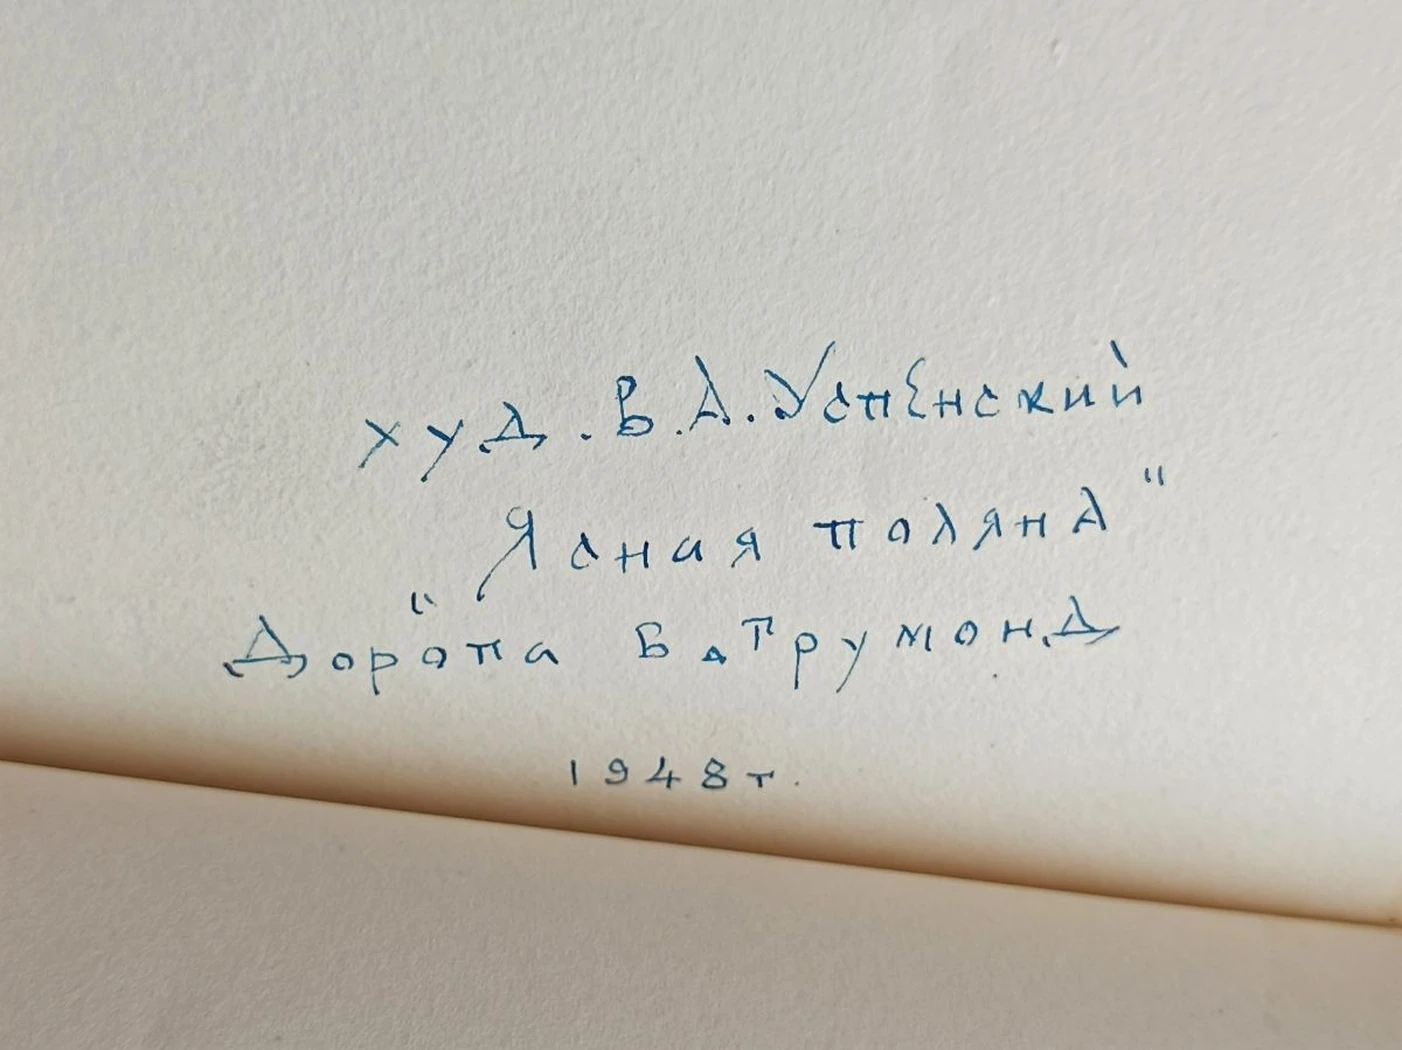 худ. В.А. Успенский
"Ясная поляна"
Дорога в. Грумонд
1948 г.